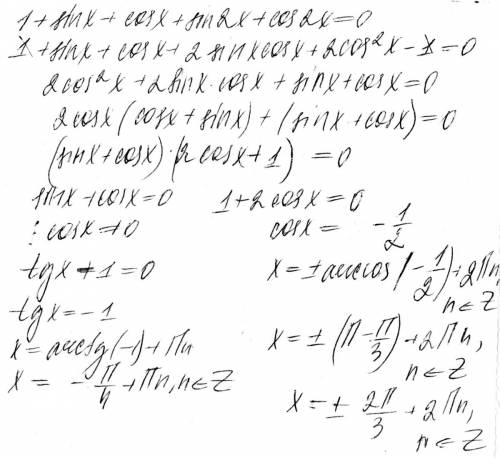 1+sinx+cosx+sin2x+cos2x=0
1+sinx+cosx+2sinxcosx+2cos²x-1=0
2cos²x+2sinx·cosx+sinx+cosx=0
2cosx(cosx+sinx)+(sinx+cosx)=0
(sinx+cosx)·(2cosx+1)=0
sinx+cosx=0
:cosx≠0
tgx+1=0
tgx=-1
x=arctg(-1)+Πn
x=-Π/4+Πn, n∈Z
1+2cosx=0
cosx=-1/2
x=±arccos(-1/2)+2Πn,
n∈Z
x=±(Π-Π/3)+2Πn,
n∈Z
x=±2Π/3+2Πn,
n∈Z